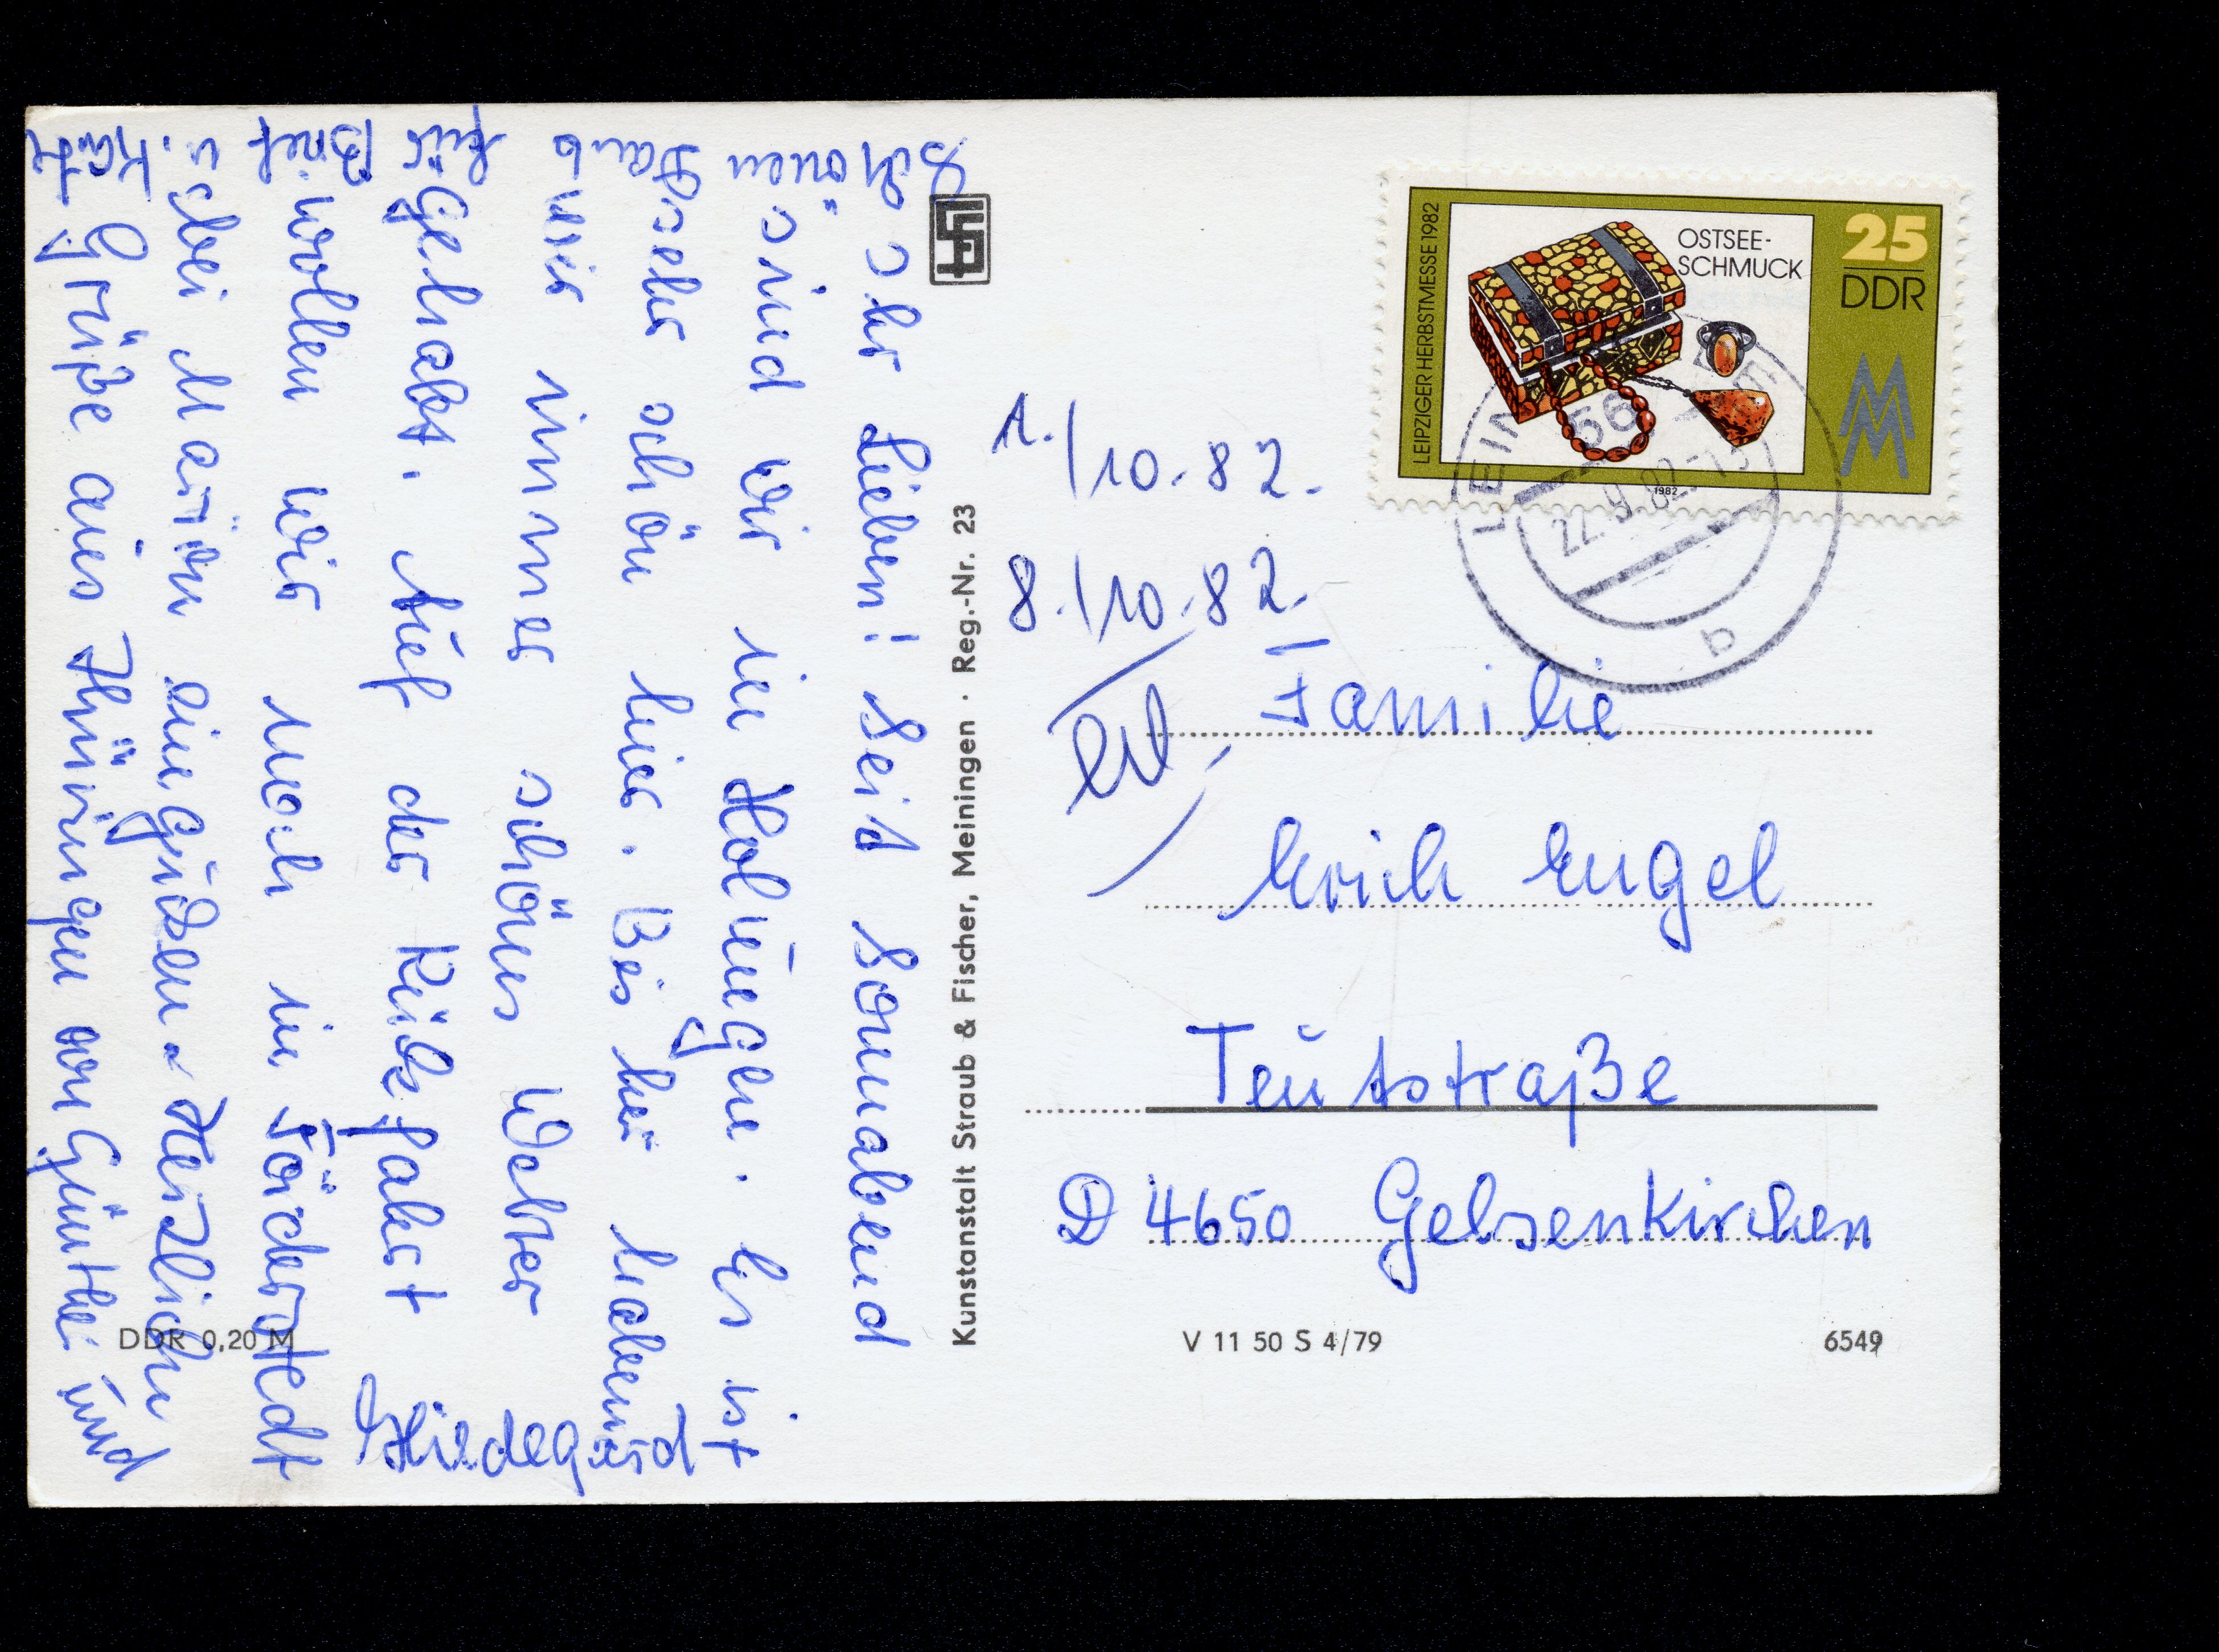 Ihr Lieben! Seit Sonnabend
sind wir in Holungen. Es ist
sehr schön hier. Bis her haben
wir immer schönes Wetter
gehabt. Auf der Rückfahrt
wollen wir noch in Förderstedt
bei Marion eingucken. Herzliche
Grüße aus Thüringen von Günther und
Hildegard
Schönen Dank für Brief u. Karte
Kunstanstalt Straub & Fischer, Meiningen · Reg.-Nr. 23
LEIPZIGER HERBSTMESSE 1982
OSTSEE-
SCHMUCK
25
DDR
1982
22.9.82
b
1./10.82.
8./10.82.
erl.
Familie
Erich Engel
Teutstraße
D 4650 Gelsenkirchen
DDR 0,20 M
V 11 50 S 4/79
6549